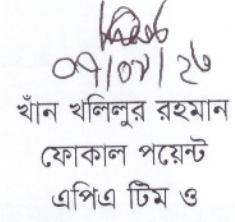 ০৭/০৮/২৬
খাঁন খলিলুর রহমান
ফোকাল পয়েন্ট
এপিএ টিম ও